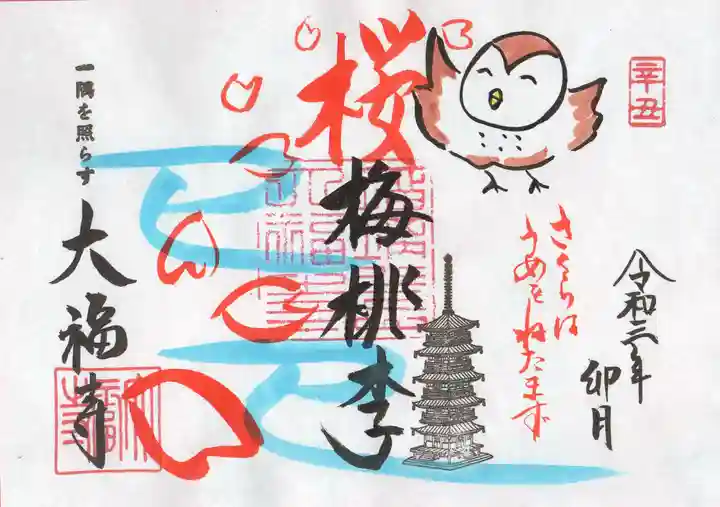 辛丑
令和三年
卯月
さくらは
うめをねたまず
桜梅桃李
一隅を照らす
大福寺